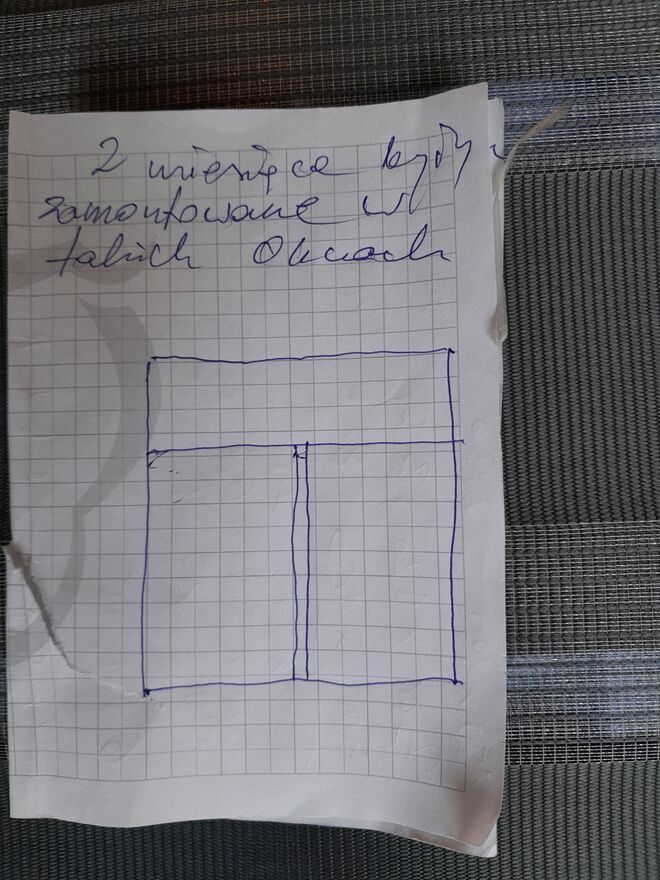 2 miesiące były
zamontowane w
takich oknach